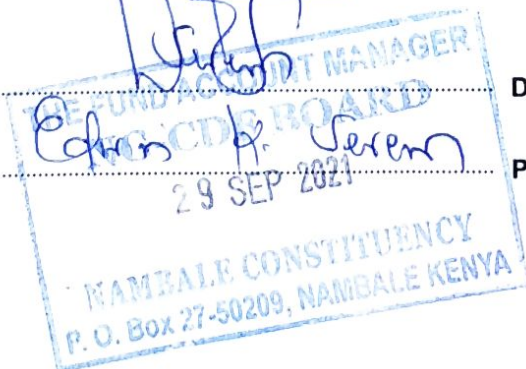 THE FUND ACCOUNT MANAGER
D
NG-CDF BOARD
Edwin K. Serem
P
29 SEP 2021
NAMBALE CONSTITUENCY
P. O. Box 27-50209, NAMBALE KENYA